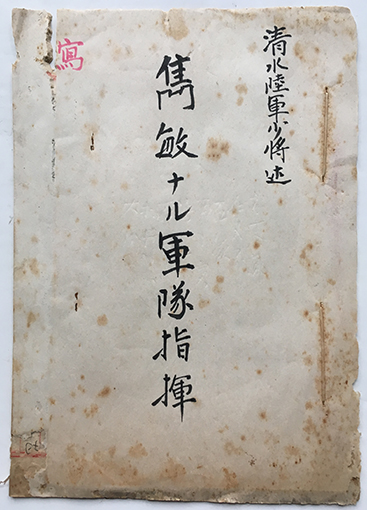 清水陸軍少将述
雋敏ナル軍隊指揮
寫